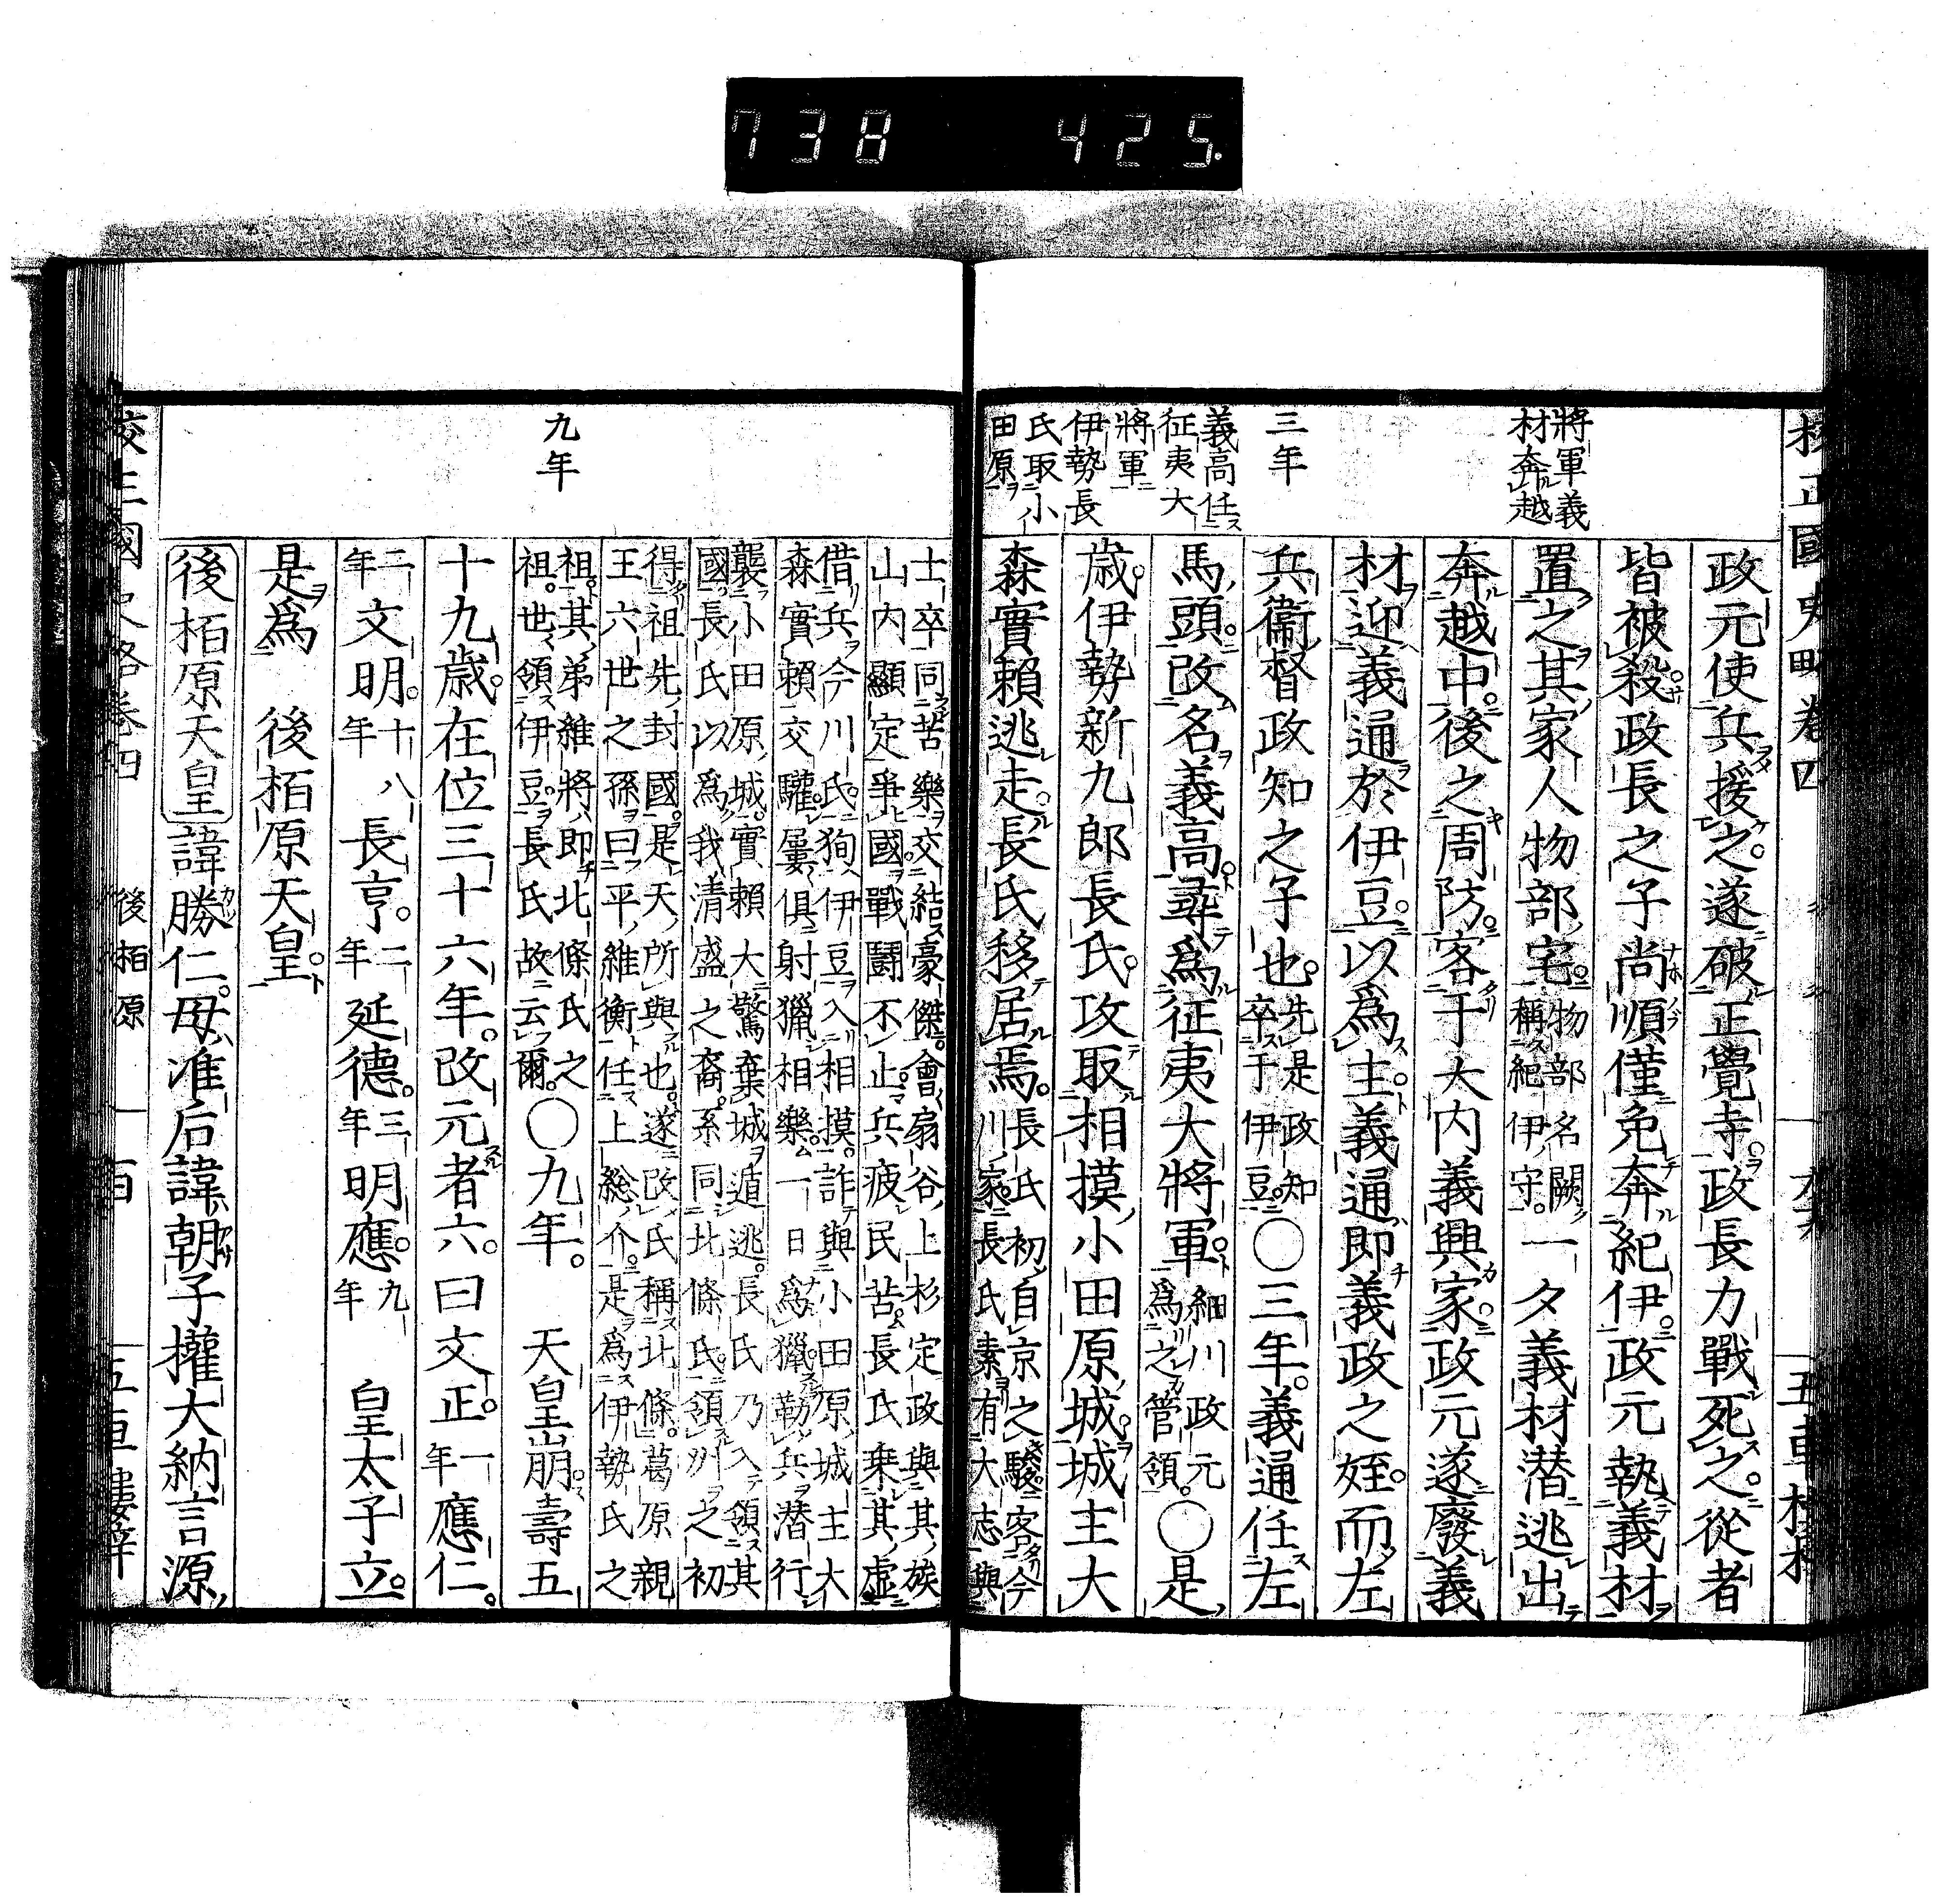 738 425.
將軍義
材奔越
三年
義高任
征夷大
將軍
伊勢長
氏取小
田原
政元使兵援之。遂破正覺寺。政長力戰死之。從者
皆被殺政長之子尚順僅免奔紀伊。政元執義材
置之其家人物部宅。物部名闕
稱紀伊守。一夕義材潜逃出
奔越中。後之周防。客于大内義興家。政元遂廢義
材迎義通於伊豆。以爲主。義通即義政之姪。而左
兵衞督政知之子也。先是政知
卒于伊豆。〇三年。義通任左
馬頭。改名義高。尋爲征夷大將軍。細川政元
爲之管領。〇是
歳。伊勢新九郎長氏。攻取相摸小田原城。城主大
森實賴逃走。長氏移居焉。長氏初自京之駿。客今
川家。長氏素有大志。與
九年
士卒同苦樂。交結豪傑。會扇谷上杉定政與其族
山内顯定爭國。戰鬪不止。兵疲民苦。長氏乗其虚
借兵今川氏。狥伊豆入相摸。詐與小田原城主大
森實賴交驩。屢俱射獵相樂。一日爲獵勒兵潜行
襲小田原城。實賴大驚棄城遁逃。長氏乃入領其
國。長氏以爲我清盛之裔。系同北條氏。領州之初
得祖先封國。是天所與也。遂改氏稱北條。葛原親
王六世之孫曰平維衡任上総介。是爲伊勢氏之
祖。其弟維將。即北條氏之
祖。世領伊豆。長氏故云爾。〇九年。天皇崩。壽五
十九歳。在位三十六年。改元者六。曰文正。一年應仁。
二年文明。十八年長亨。二年延德。三年明應。九年皇太子立。
是爲後栢原天皇。
後栢原天皇諱勝仁。母准后諱朝子權大納言源
後栢原 一百